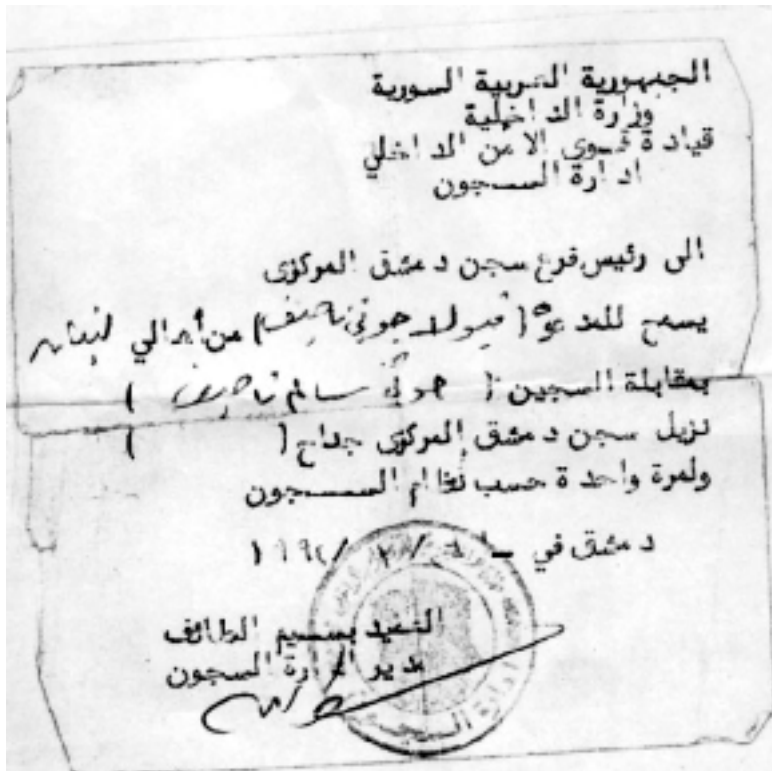 الجمهورية العربية السورية
وزارة الداخلية
قيادة قوى الامن الداخلي
ادارة السجون
الى رئيس فرع سجن دمشق المركزى
يسمح للمدعوه ( جوني ناصيف ) من أهالي لبنان
بمقابلة السجين ( سالم ناصيف )
نزيل سجن دمشق المركزى جناح ( )
ولمرة واحدة حسب نظام السجون
دمشق في / /
العميد بسيم الطائف
مدير ادارة السجون
ادارة السجون